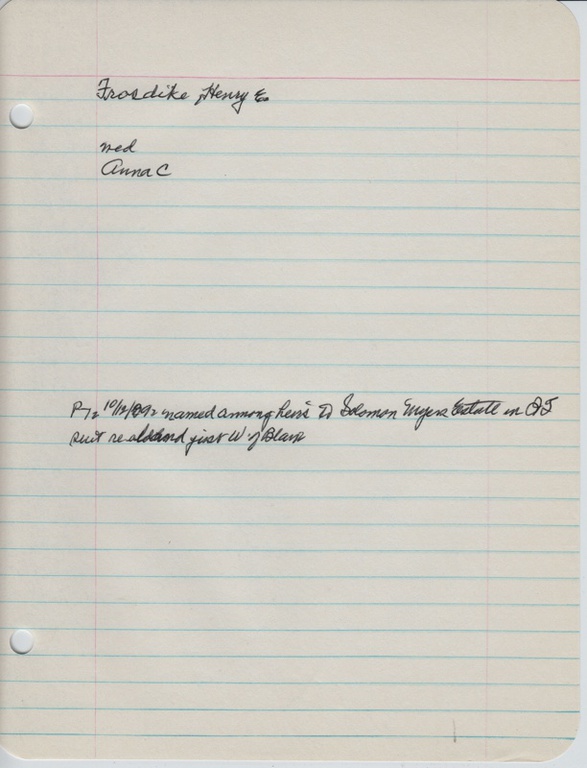 Frosdike, Henry E
wed
Anna C
10/12/1892 named among heirs to Solomon Myers Estate in QT
suit re and just W of Blair